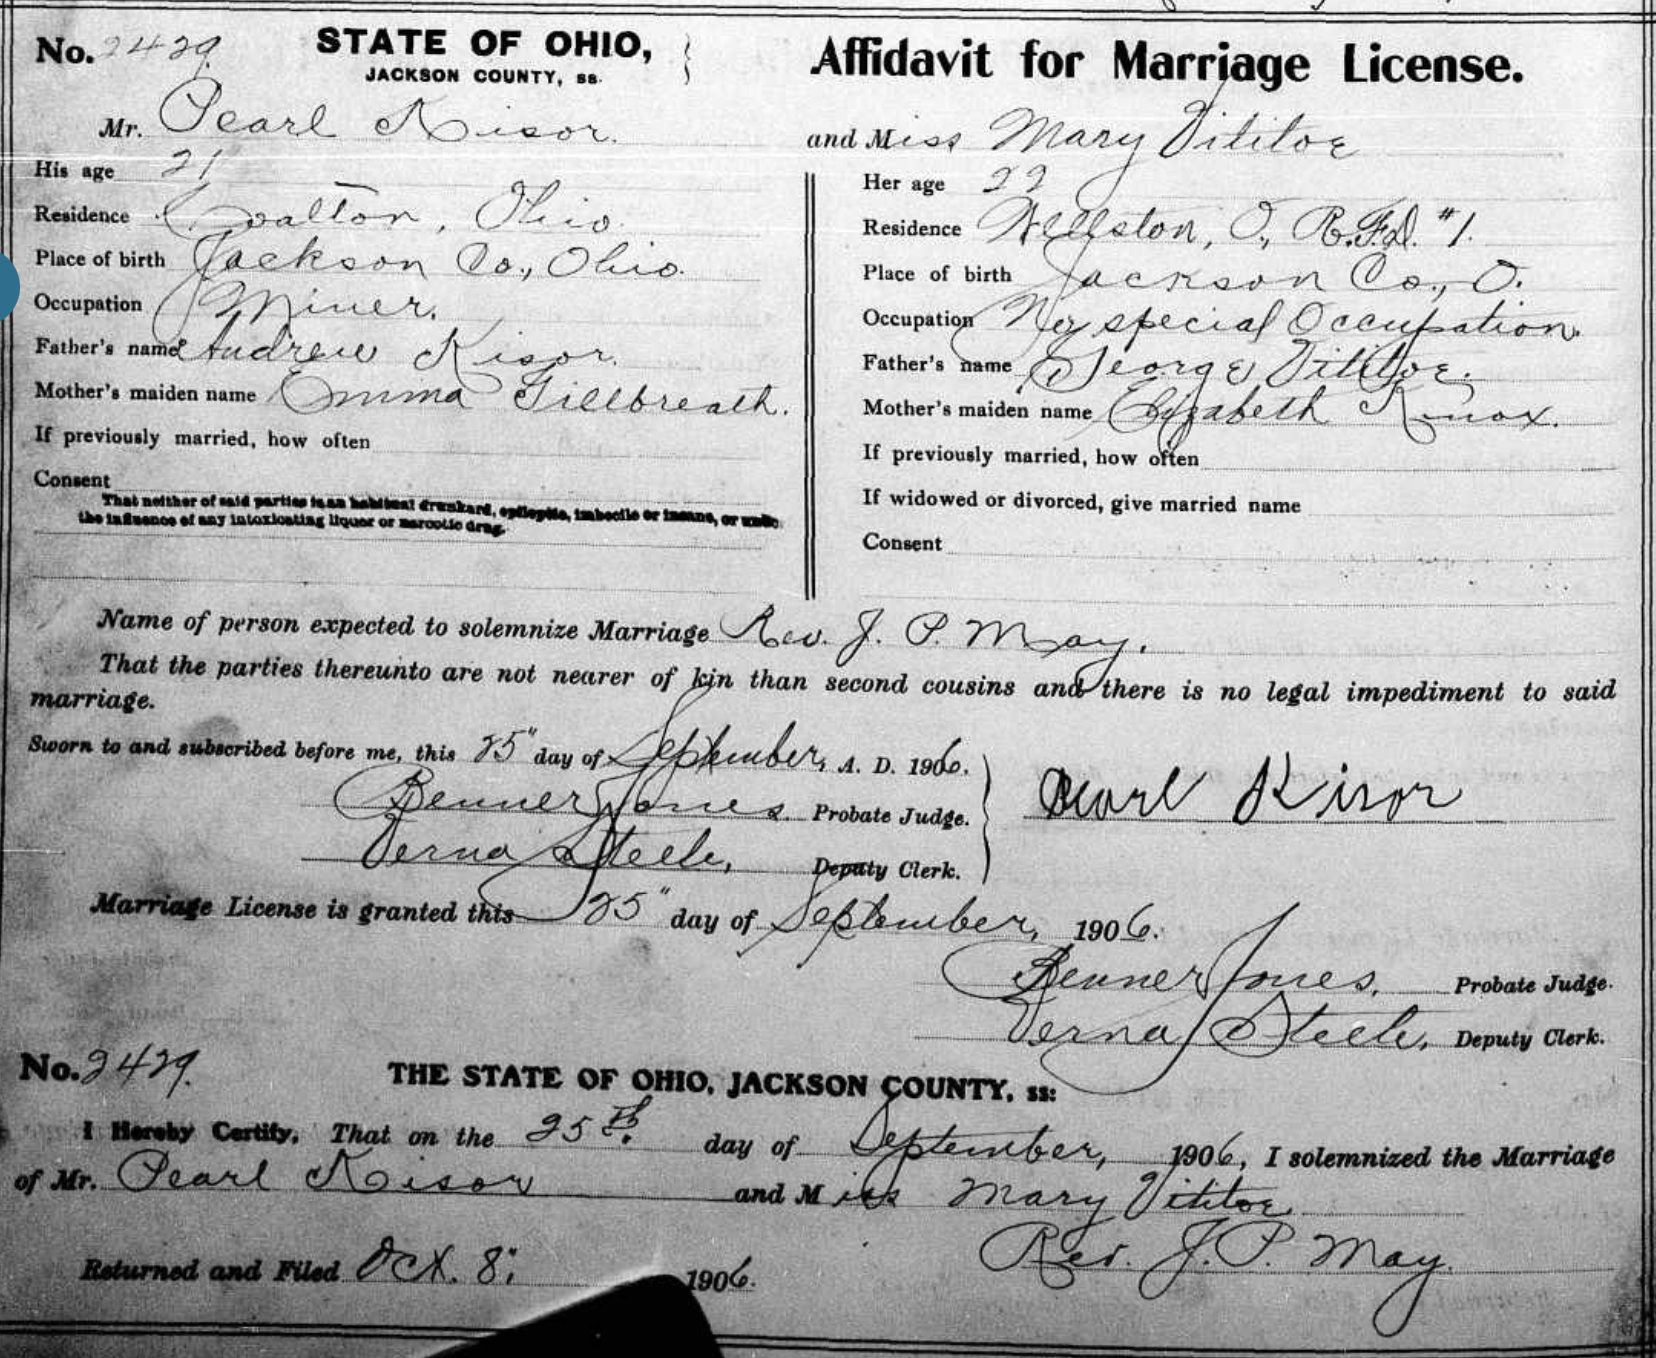 No. 2429. STATE OF OHIO, Affidavit for Marriage License.
JACKSON COUNTY, ss.
Mr. Pearl Kisor. and Miss Mary Vititoe
His age 21 Her age 22
Residence Coalton, Ohio. Residence Wellston, O., R.F.D. #1.
Place of birth Jackson Co., Ohio. Place of birth Jackson Co., O.
Occupation Miner. Occupation No special Occupation.
Father's name Andrew Kisor. Father's name George Vititoe.
Mother's maiden name Emma Gillbreath. Mother's maiden name Elizabeth Knox.
If previously married, how often If previously married, how often
Consent If widowed or divorced, give married name
That neither of said parties is an habitual drunkard, epileptic, imbecile or insane, or under
the influence of any intoxicating liquor or narcotic drug.
Consent
Name of person expected to solemnize Marriage Rev. J. P. May.
That the parties thereunto are not nearer of kin than second cousins and there is no legal impediment to said
marriage.
Sworn to and subscribed before me, this 25" day of September, A. D. 1906.
Benner Jones Probate Judge. Pearl Kisor
Verna Steele, Deputy Clerk.
Marriage License is granted this 25" day of September, 1906.
Benner Jones, Probate Judge.
Verna Steele, Deputy Clerk.
No. 2429. THE STATE OF OHIO, JACKSON COUNTY, ss:
I Hereby Certify, That on the 25th. day of September, 1906, I solemnized the Marriage
of Mr. Pearl Kisor and Miss Mary Vititoe
Rev. J. P. May.
Returned and Filed Oct. 8" 1906.